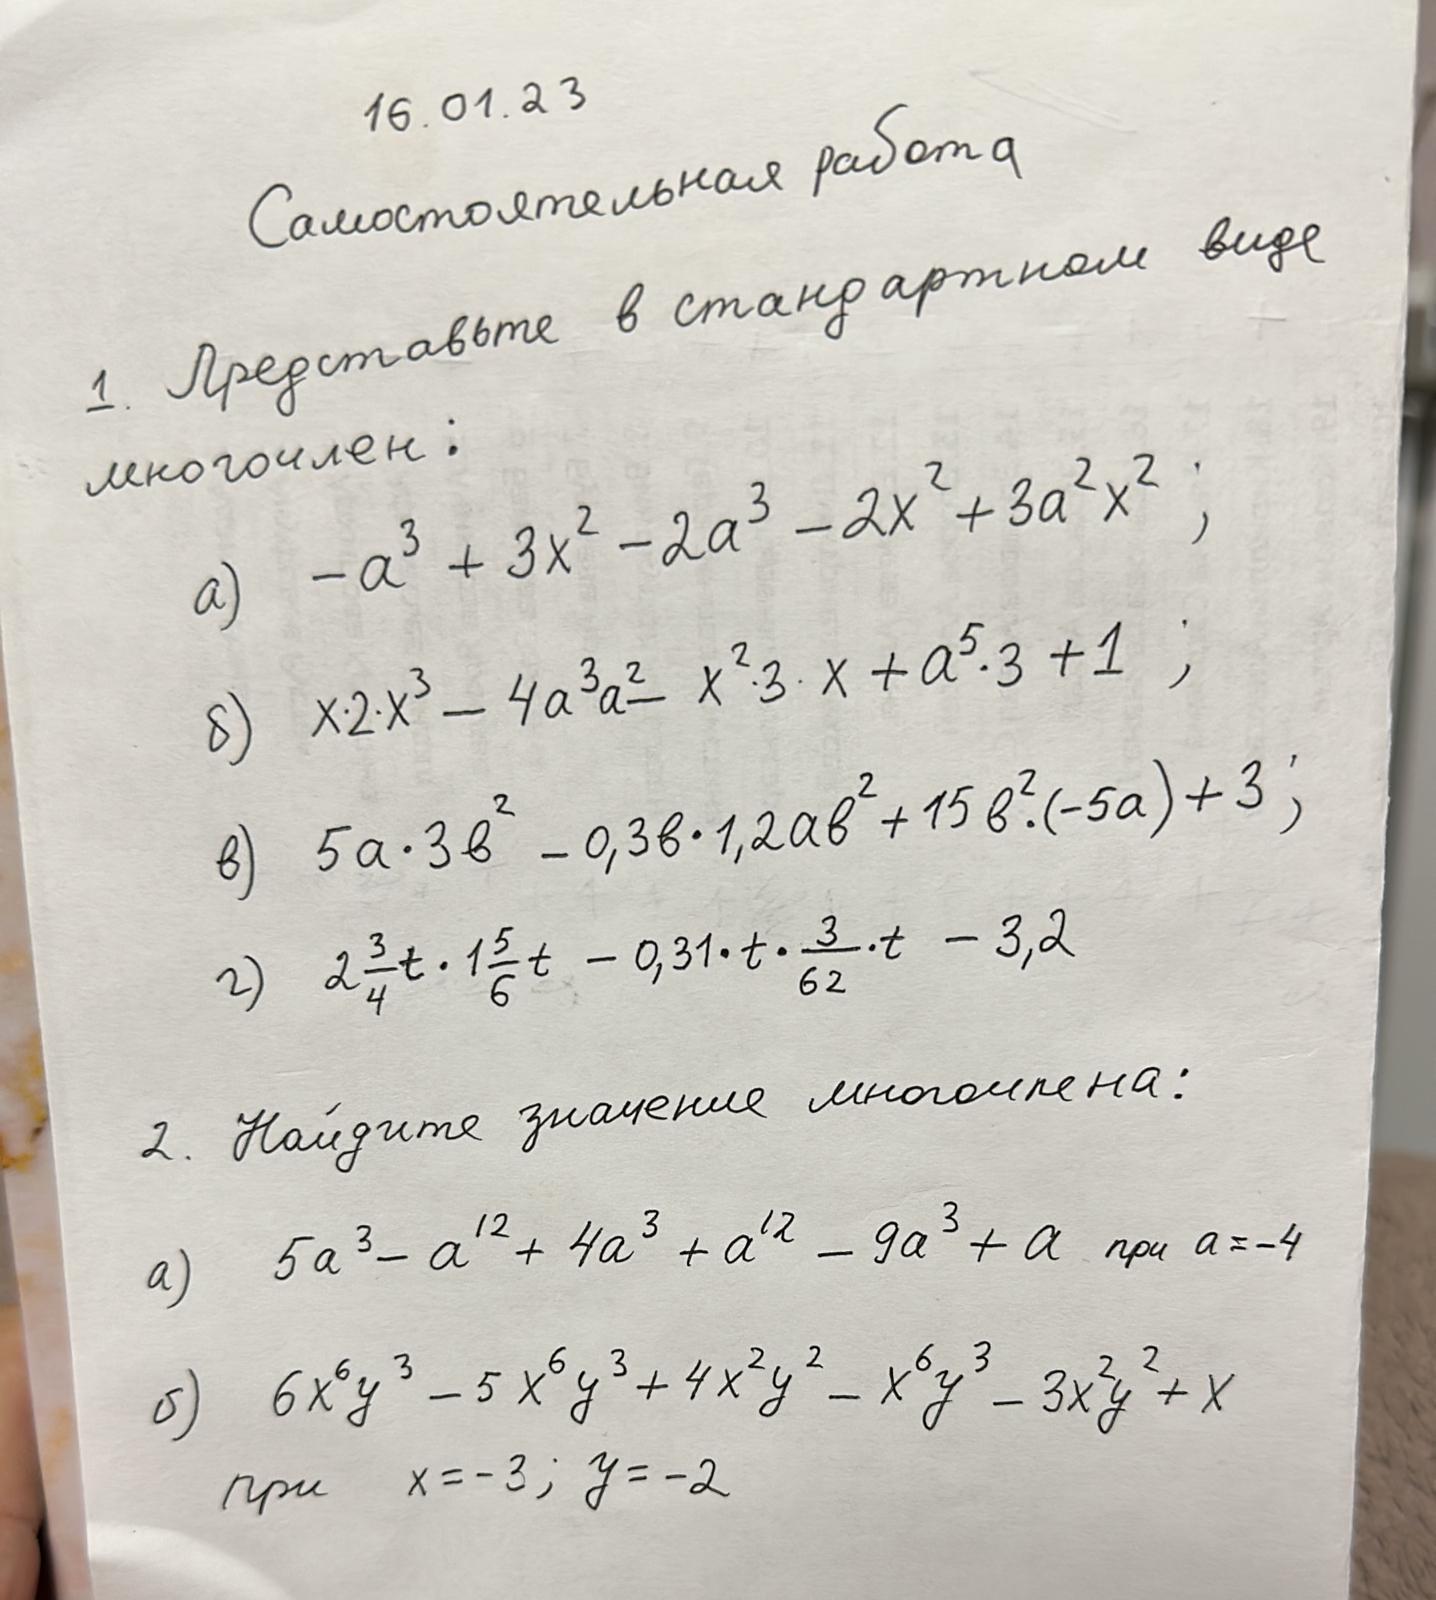 16.01.23
Самостоятельная работа
1. Представьте в стандартном виде
многочлен:
а) -a³ + 3x² - 2a³ - 2x² + 3a²x² ;
б) x·2·x³ - 4a³a² - x²·3·x + a⁵·3 + 1 ;
в) 5a·3в² - 0,3в·1,2aв² + 15в²·(-5a) + 3 ;
г) 2 3/4 t · 1 5/6 t - 0,31·t· 3/62 ·t - 3,2
2. Найдите значение многочлена:
а) 5a³ - a¹² + 4a³ + a¹² - 9a³ + a при a = -4
б) 6x⁶y³ - 5x⁶y³ + 4x²y² - x⁶y³ - 3x²y² + x
при x = -3 ; y = -2